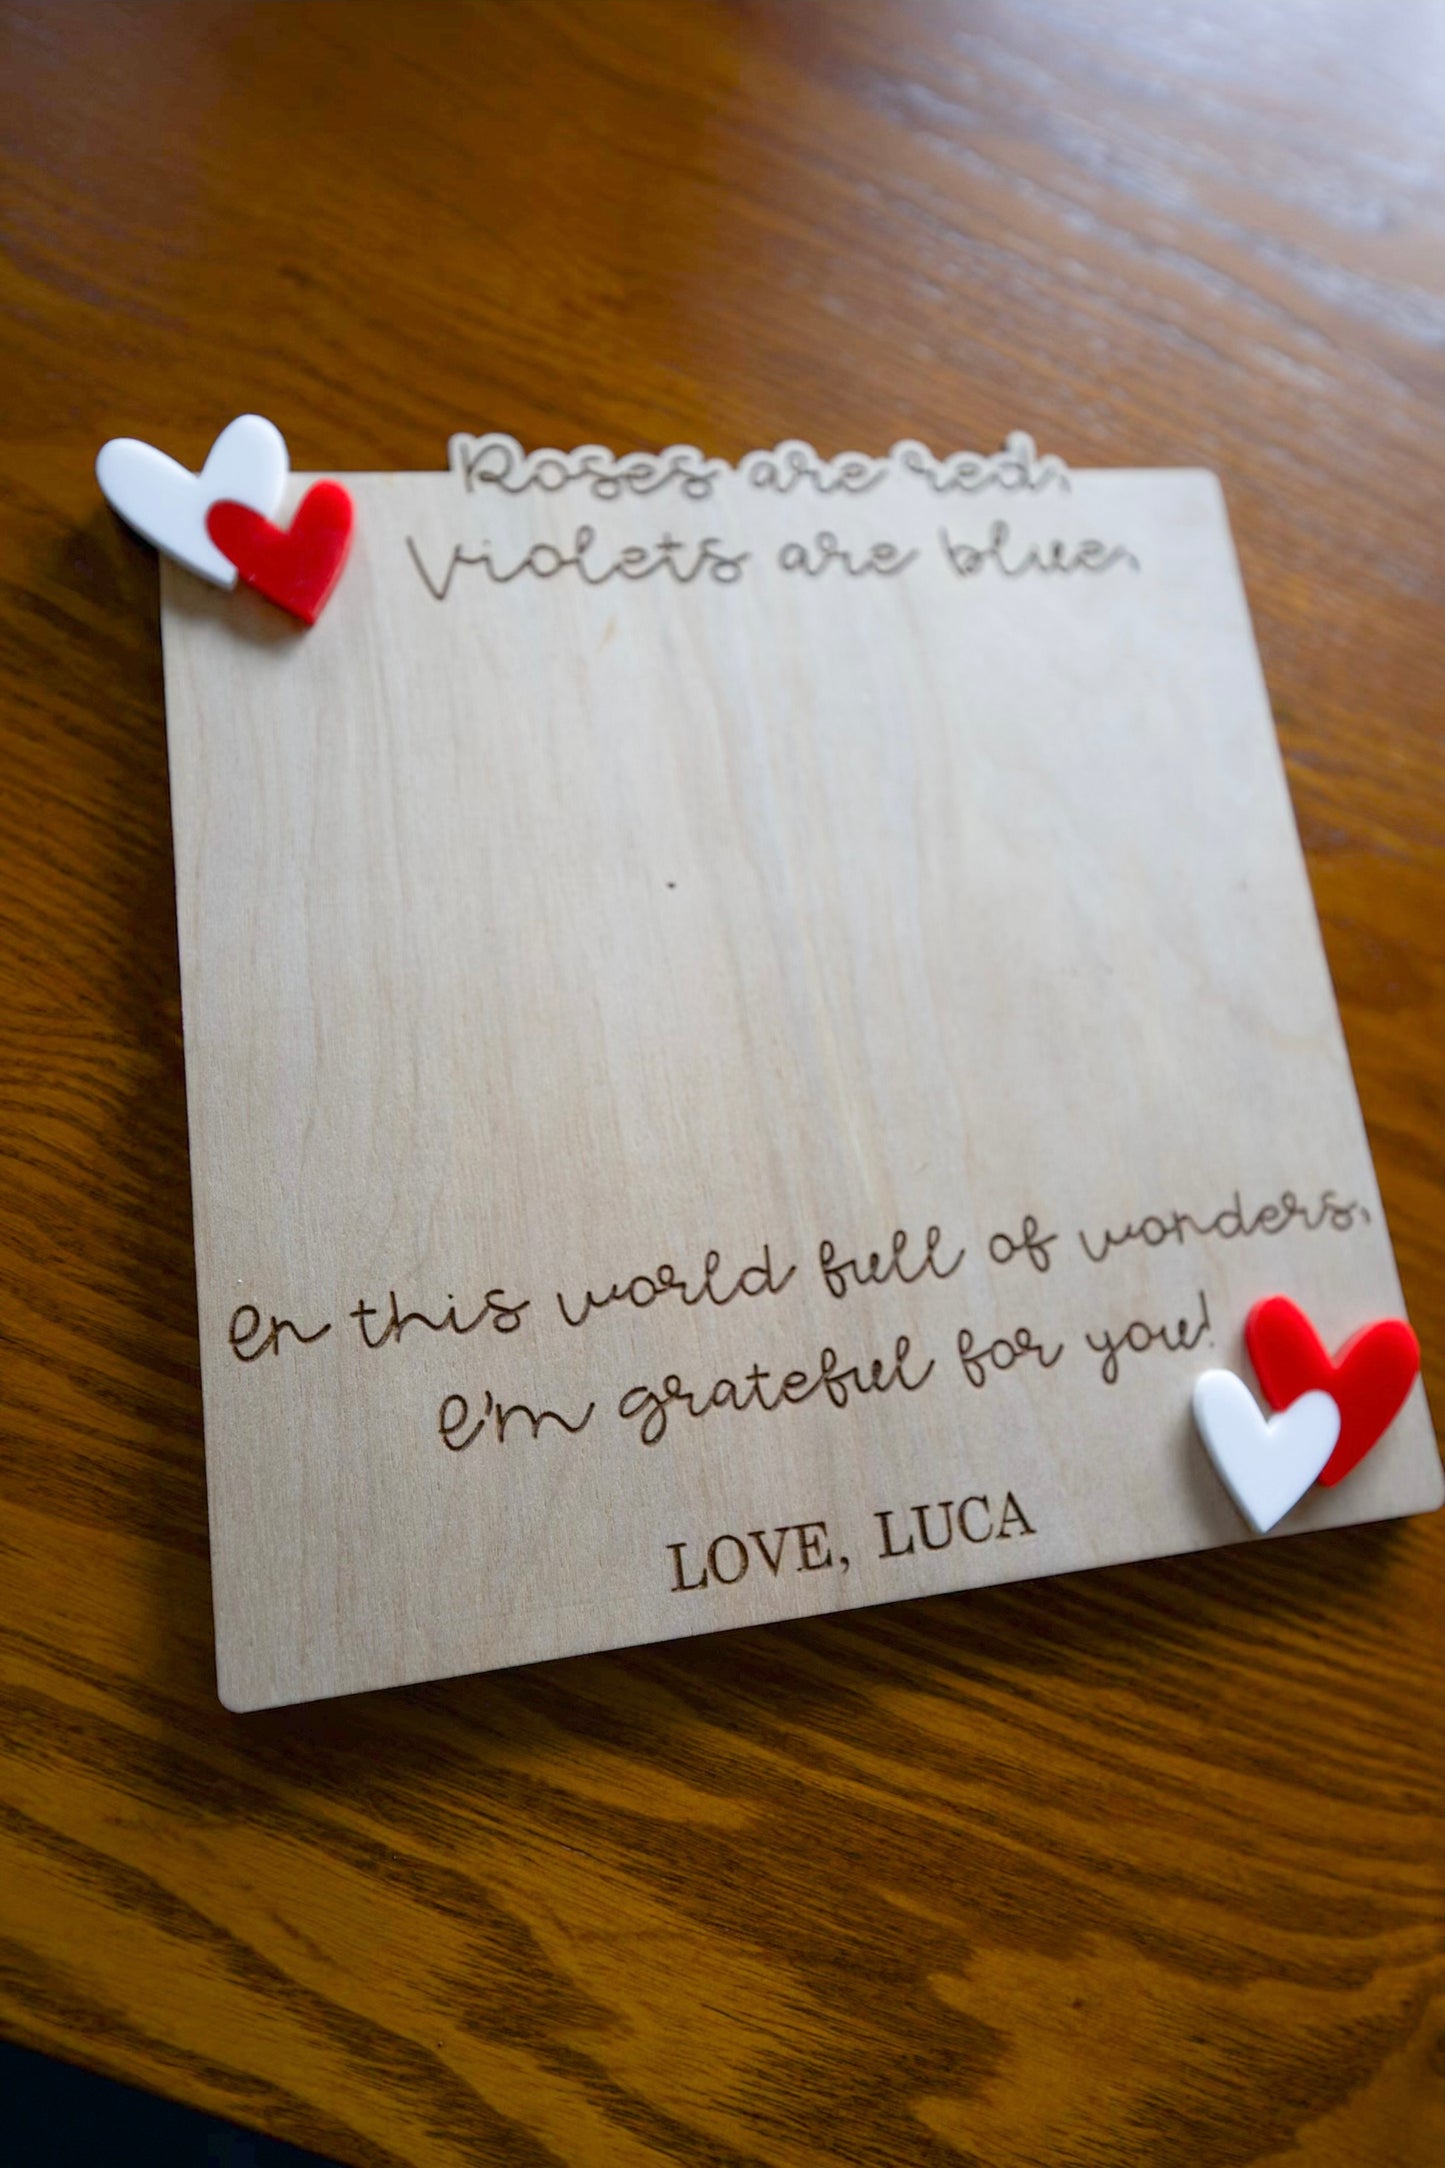 Roses are red,
Violets are blue,
In this world full of wonders,
I'm grateful for you!
LOVE, LUCA